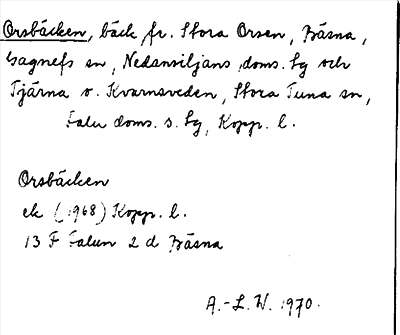 Orsbäcken, bäck fr. Stora Orsen, Bäsna,
Gagnefs sn, Nedansiljans doms. lg och
Tjärna o. Kvarnsveden, Stora Tuna sn,
Falu doms. s. lg, Kopp. l.
Orsbäcken
ek (1968) Kopp. l.
13 F Falun 2 d Bäsna
A.-L. W. 1970.